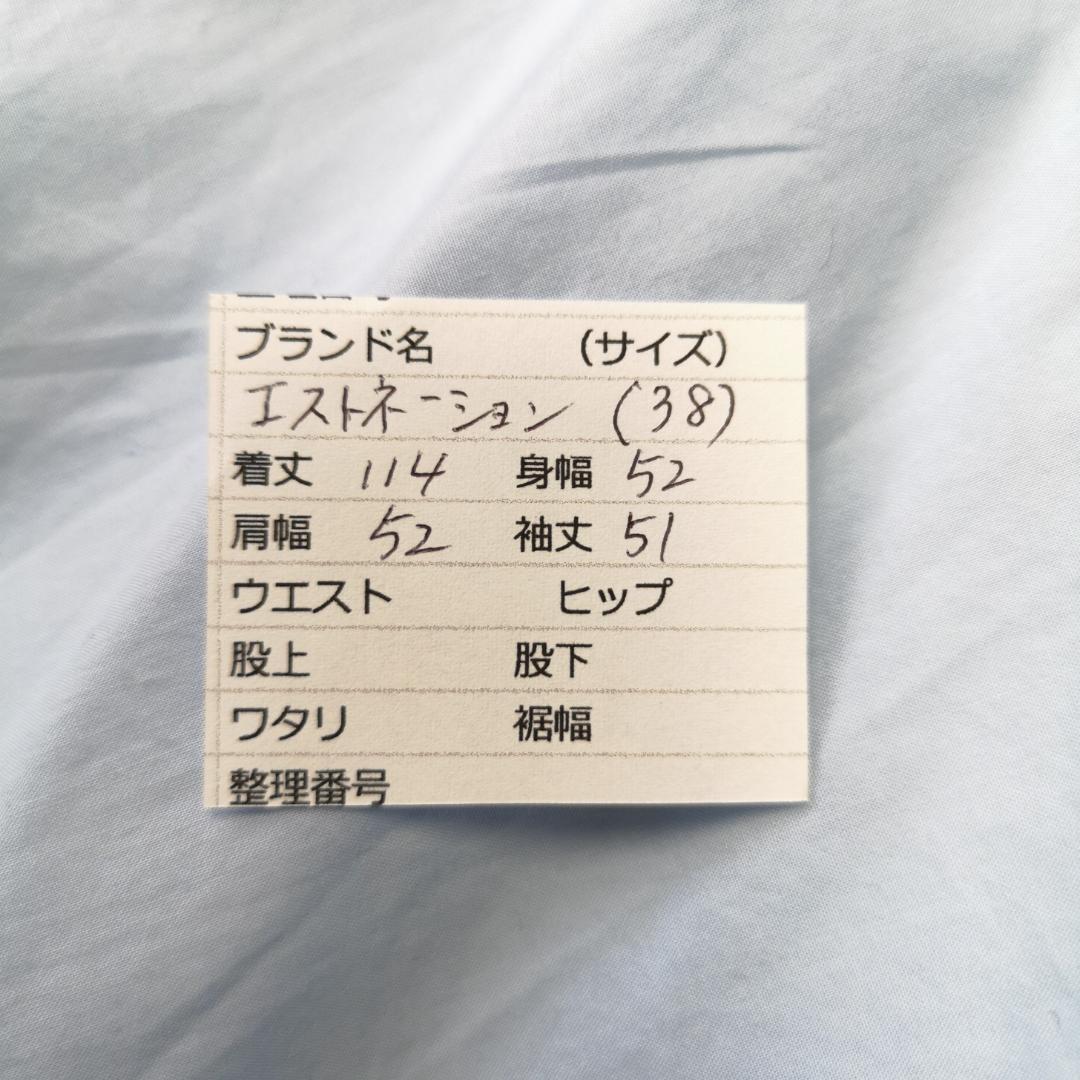 ブランド名 (サイズ)
エストネーション (38)
着丈 114 身幅 52
肩幅 52 袖丈 51
ウエスト ヒップ
股上 股下
ワタリ 裾幅
整理番号